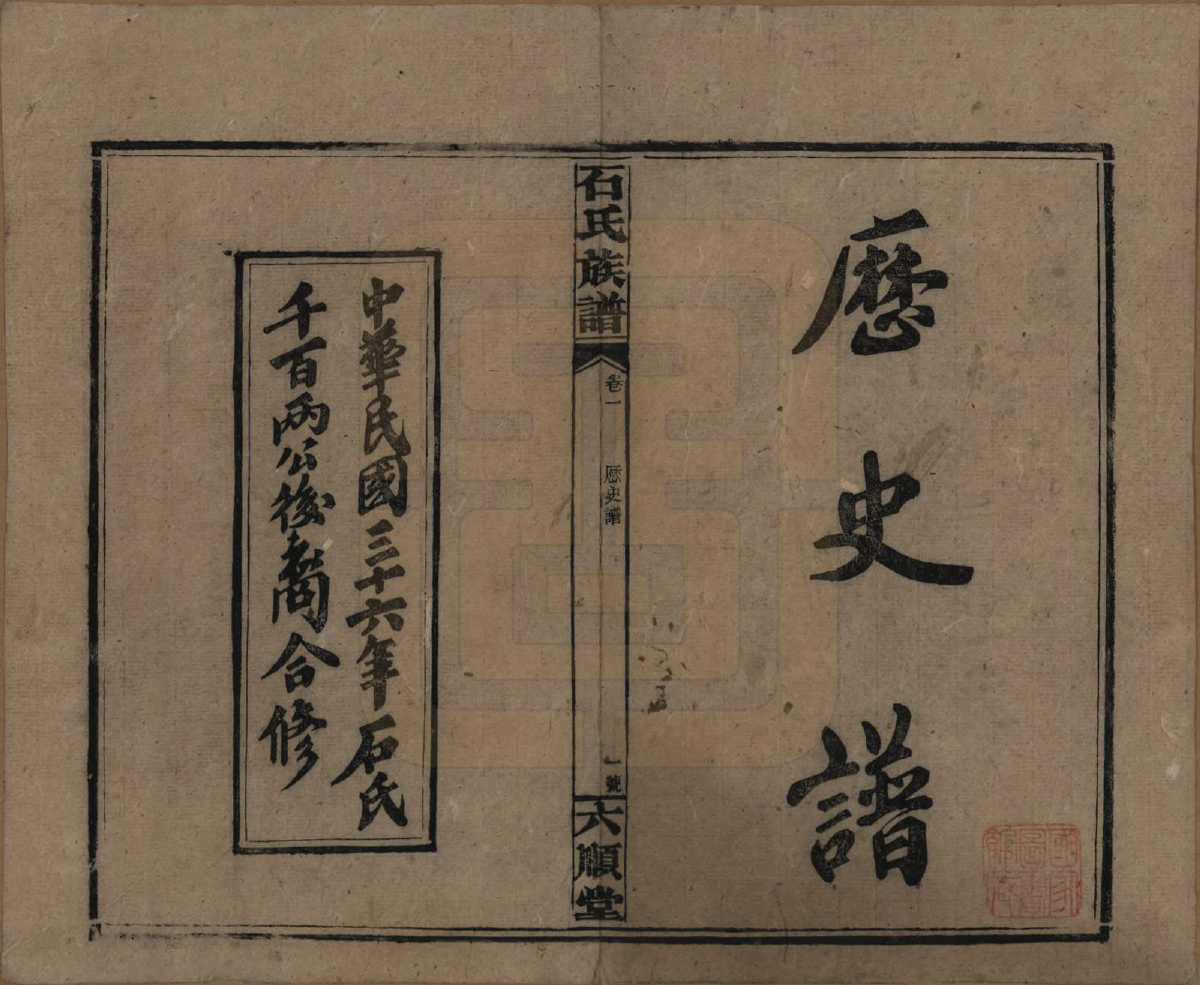 歷史譜
石氏族譜
卷一
歷史譜
一號
六順堂
中華民國三十六年石氏
千百兩公後裔合修